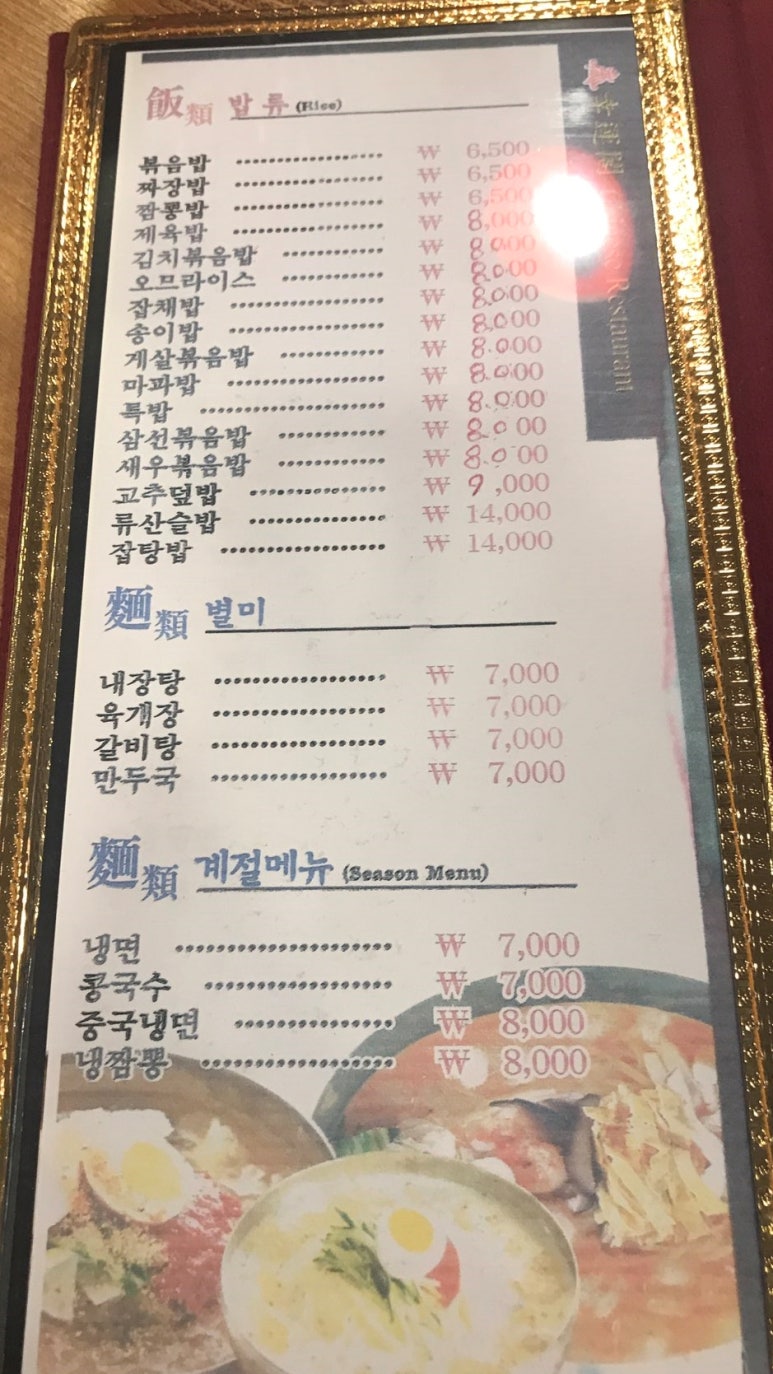 飯類 밥류 (Rice)
볶음밥 ······················ ₩ 6,500
짜장밥 ······················ ₩ 6,500
짬뽕밥 ······················ ₩ 6,500
제육밥 ······················ ₩ 8,000
김치볶음밥 ··············· ₩ 8,000
오므라이스 ··············· ₩ 8,000
잡채밥 ······················ ₩ 8,000
송이밥 ······················ ₩ 8,000
게살볶음밥 ··············· ₩ 8,000
마파밥 ······················ ₩ 8,000
특밥 ·························· ₩ 8,000
삼선볶음밥 ··············· ₩ 8,000
새우볶음밥 ··············· ₩ 8,000
고추덮밥 ··················· ₩ 9,000
류산슬밥 ··················· ₩ 14,000
잡탕밥 ······················ ₩ 14,000
麵類 별미
내장탕 ······················ ₩ 7,000
육개장 ······················ ₩ 7,000
갈비탕 ······················ ₩ 7,000
만두국 ······················ ₩ 7,000
麵類 계절메뉴 (Season Menu)
냉면 ·························· ₩ 7,000
콩국수 ······················ ₩ 7,000
중국냉면 ··················· ₩ 8,000
냉짬뽕 ······················ ₩ 8,000
幸運閣
Restaurant